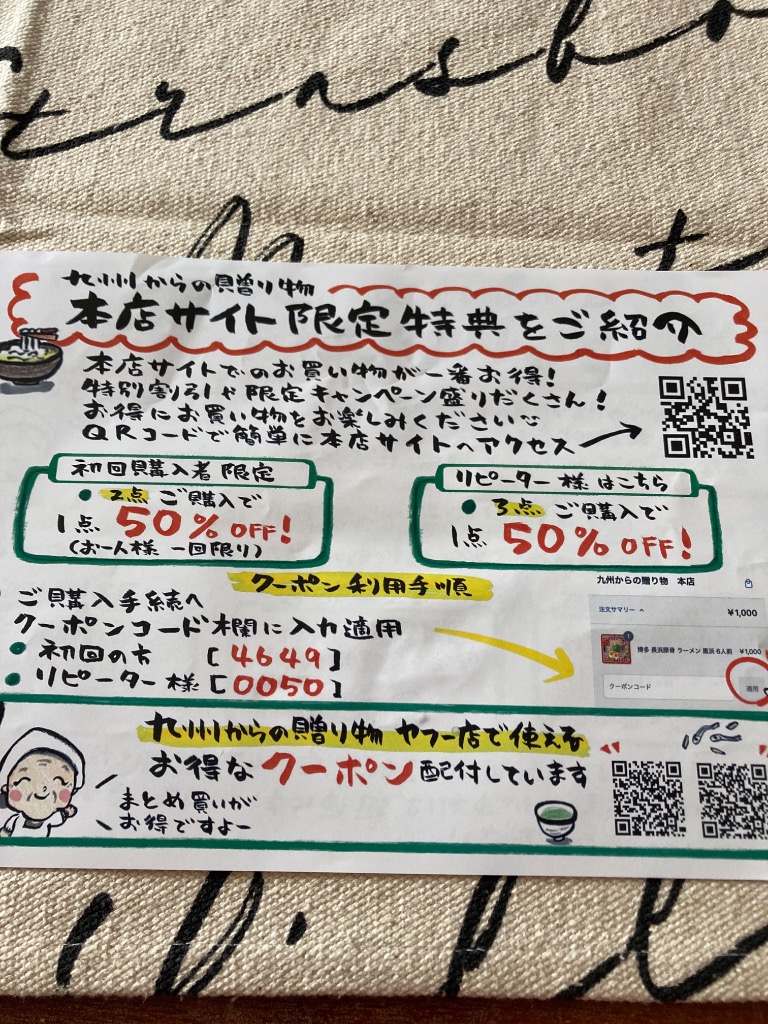 九州からの贈り物
本店サイト限定特典をご紹介
本店サイトでのお買い物が一番お得!
特別割引や限定キャンペーン盛りだくさん!
お得にお買い物をお楽しみください
QRコードで簡単に本店サイトへアクセス
初回購入者限定
2点ご購入で
1点 50% OFF!
(お一人様 一回限り)
リピーター様はこちら
3点ご購入で
1点 50% OFF!
クーポン利用手順
ご購入手続へ
クーポンコード欄に入力適用
初回の方 [4649]
リピーター様 [0050]
九州からの贈り物 本店
注文サマリー ¥1,000
1
博多 長浜豚骨 ラーメン 黒浜 6人前 ¥1,000
クーポンコード 適用
九州からの贈り物 ヤフー店で使える
お得なクーポン配付しています
まとめ買いが
お得ですよー